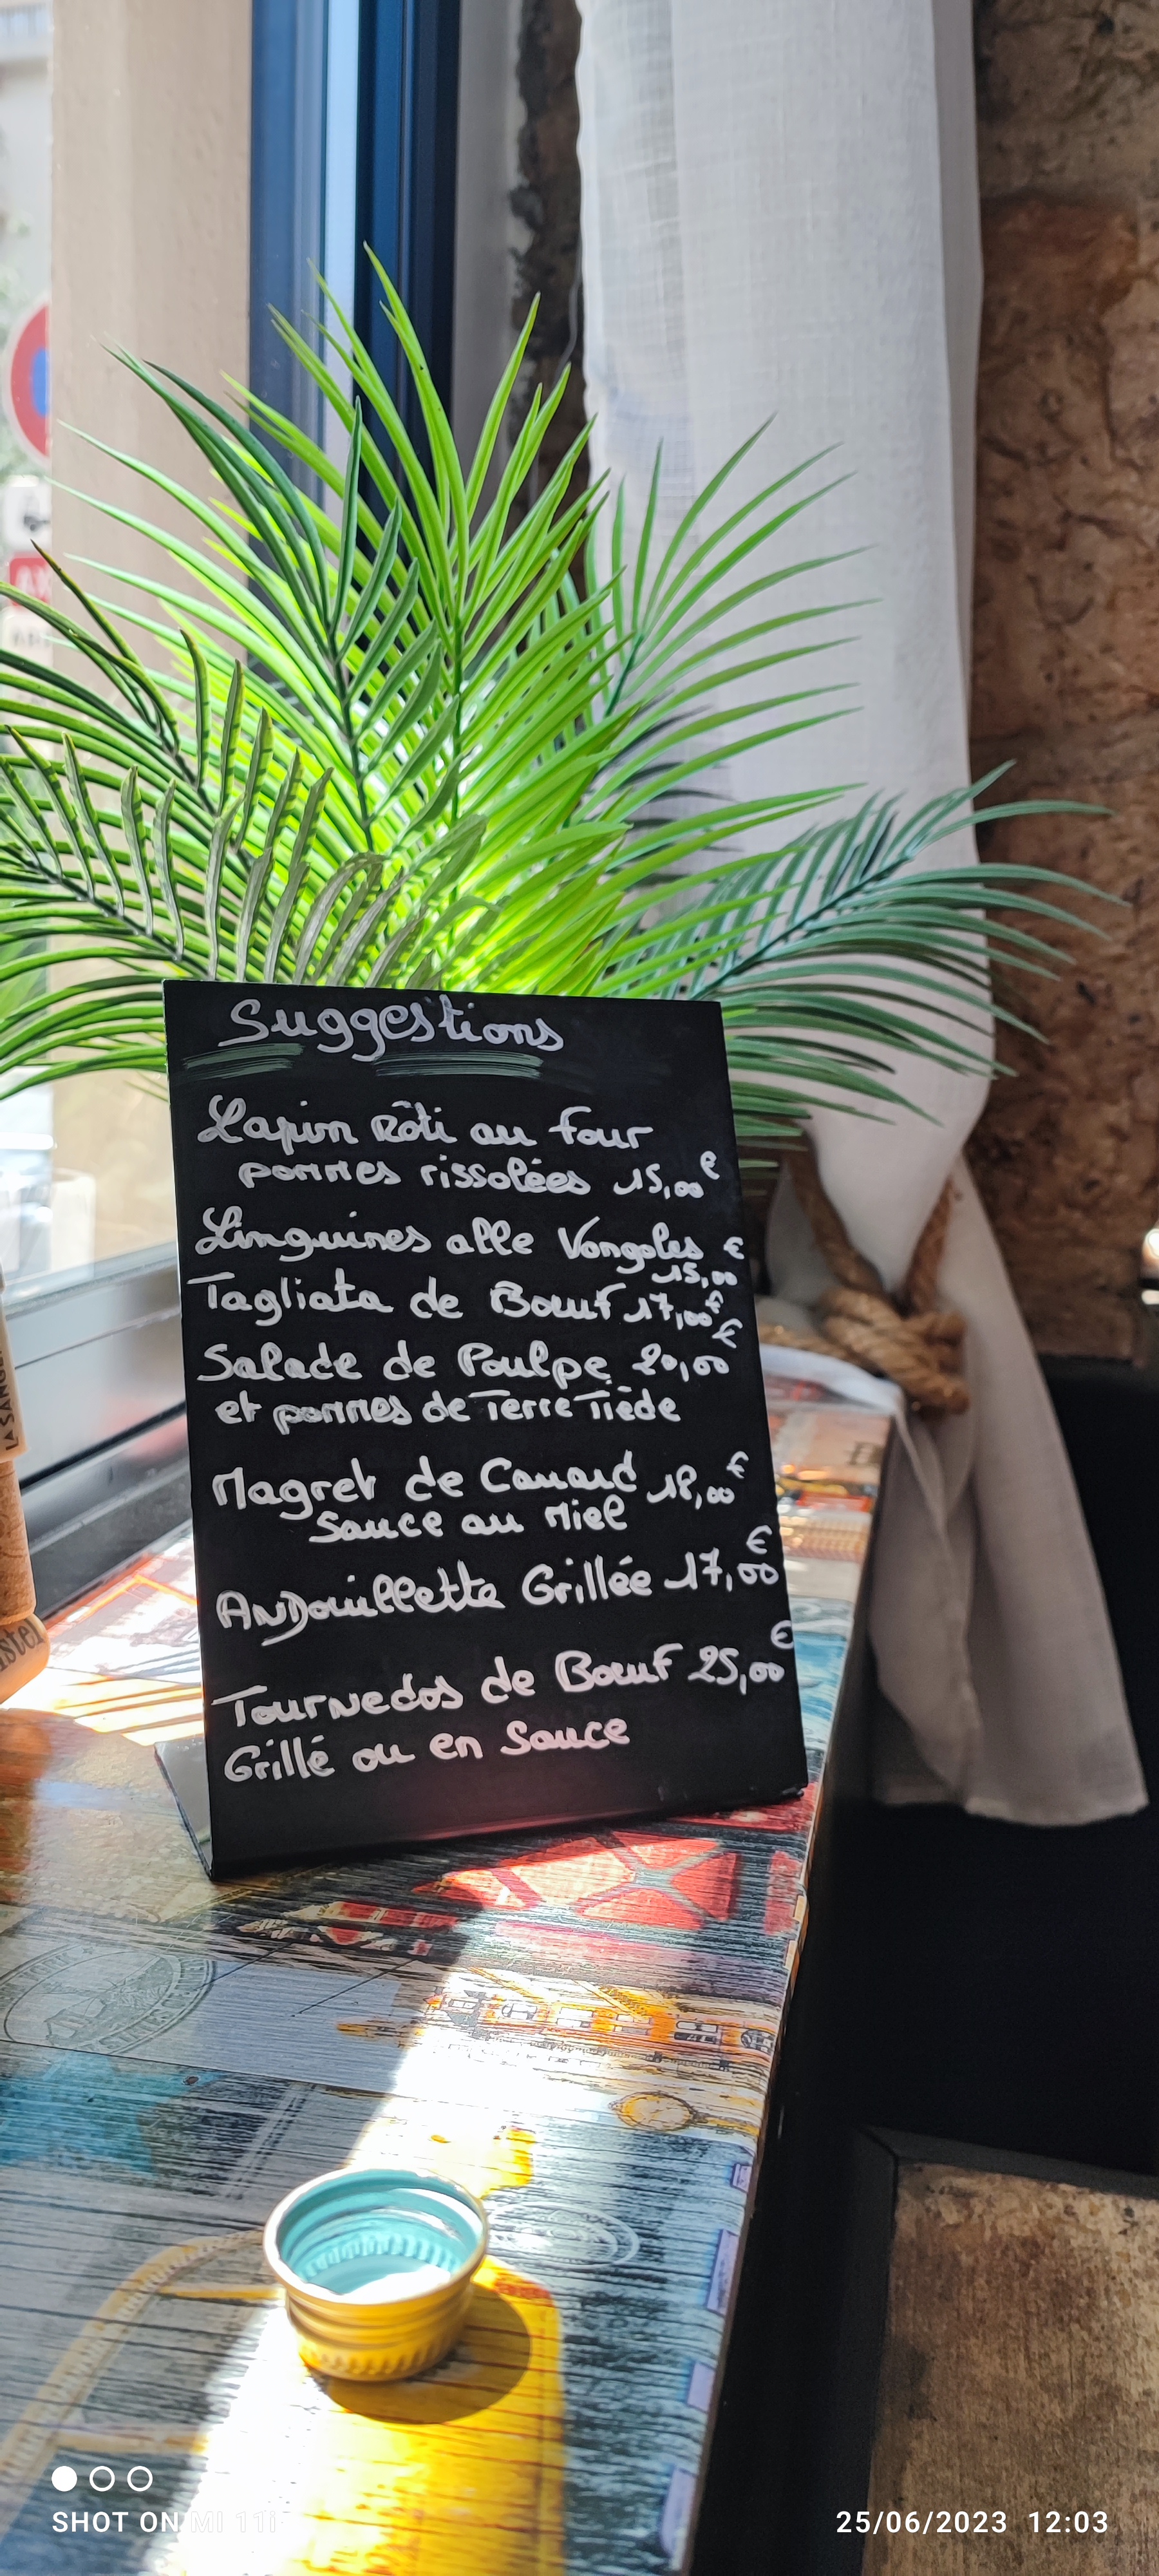 Suggestions
Lapin Rôti au four
pommes rissolées 15,00€
Linguines alle Vongoles €
15,00
Tagliata de Bœuf 17,00€
Salade de Poulpe 20,00€
et pommes de Terre Tiède
Magret de Canard 18,00€
Sauce au Miel
Andouillette Grillée 17,00€
Tournedos de Bœuf 25,00€
Grillé ou en Sauce
SHOT ON MI 11i
25/06/2023 12:03